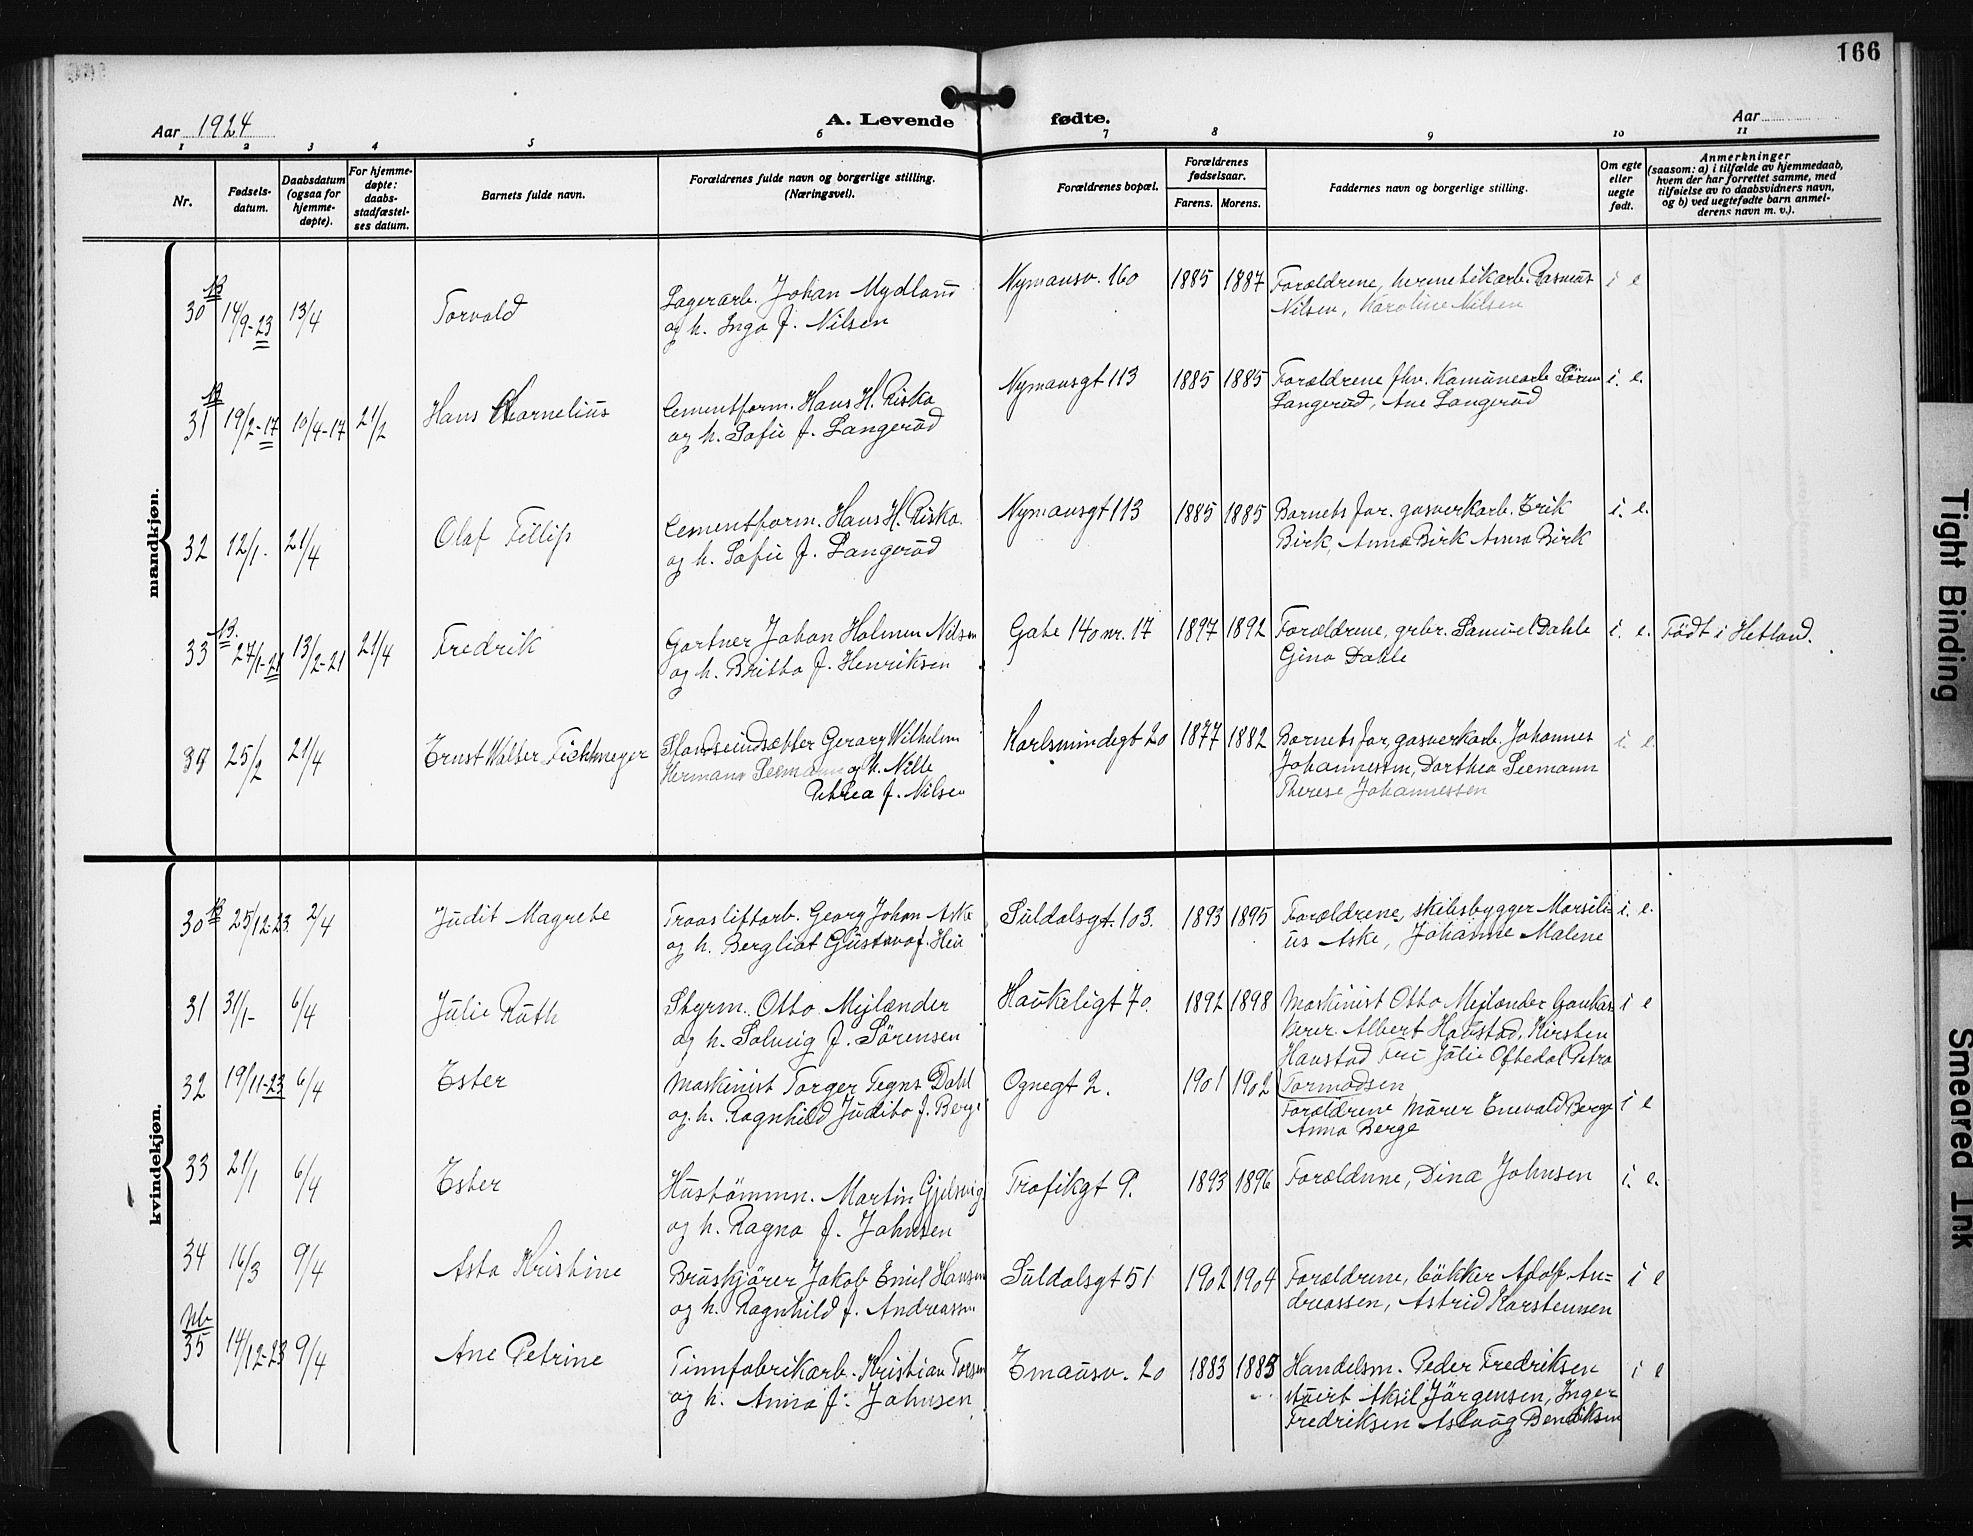 166
Aar 1924
A. Levende fødte.
Aar
1 2 3 4 5 6 7 8 9 10 11
Nr.
Fødsels-
datum.
Daabsdatum
(ogsaa for
hjemme-
døpte).
For hjemme-
døpte:
daabs-
stadfæstel-
ses datum.
Barnets fulde navn.
Forældrenes fulde navn og borgerlige stilling.
(Næringsvei).
Forældrenes bopæl.
Forældrenes
fødselsaar.
Farens. Morens.
Faddernes navn og borgerlige stilling.
Om egte
eller
uegte
født.
Anmerkninger
(saasom: a) i tilfælde av hjemmedaab,
hvem der har forrettet samme, med
tilføielse av to daabsvidners navn,
og b) ved uegtefødte barn anmel-
derens navn m. v.).
mandkjøn.
30 14/9-23 13/4 Torvald
Lagerarb. Johan Mydland
og h. Inga f. Nilsen
Nymansv. 160 1885 1887
Forældrene, hermetikarb. Rasmus
Nilsen, Karoline Nilsen
i e
31 19/2-17 10/4-17 21/2 Hans Kornelius
Cementform. Hans H. Riska
og h. Sofie f. Langerud
Nymansgt 113 1885 1885
Forældrene fhv. Komunearb Sören
Langerud, Ane Langerud
i. e.
32 12/1. 21/4 Olaf Fillip
Cementform. Hans H. Riska.
og h. Sofie f. Langerud
Nymansgt 113 1885 1885
Barnets far. gasverkarb. Erik
Birk, Anna Birk Anna Birk
i. e.
33 27/1-21 13/2-21 21/4 Fredrik
Gartner Johan Holmen Nilsen
og h. Britha f. Henriksen
Gate 140 nr. 17 1897 1892
Forældrene, grbr. Samuel Dahle
Gina Dahle
i. e. Födt i Hetland.
34 25/2 21/4 Ernst Walter
Wilhelm
Hermann Seemann og h. Nille
Petrea f. Nilsen
Karlsmindegt 20 1877 1882
Barnets far gasverkarb. Johannes
Johannessen, Dorthea Seemann
Therese Johannessen
i. e.
kvindekjøn.
30 25/12-23. 2/4 Judit Magrete
Georg Johan Aske
og h. Bergliot Gustava f. Hei
Suldalsgt. 103. 1893 1895
Forældrene, skibsbygger Marsili
us Aske, Johanne Malene
i. e.
31 31/1- 6/4 Julie Ruth
Styrm. Otto Mejlænder
og h. Solveig f. Sörensen
Haukeligt 70. 1892 1898
Maskinist Otto Mejlænder
Albert Haustad, Kirsten
Haustad Fri Julie Oftedal Petra
Tormodsen
i e
32 19/11-23 6/4 Ester
Maskinist Torger Tegns Dahl
og h. Ragnhild Judita f. Berge
Ognegt 2. 1901 1902
Forældrene Mürer Enevald Berge
Anna Berge
i e
33 21/1 6/4 Ester
Hustömmn. Martin Gjelsvig
og h. Ragna f. Johnsen
Trafikgt 9. 1893 1896
Forældrene, Dina Johnsen
i. e.
34 16/3 9/4 Asta Kristine
Bruskjörer Jakob Emil Hansen
og h. Ragnhild f. Andreassen
Suldalsgt 51 1902 1904
Forældrene, bökker Adolf An=
dreassen, Astrid Karstensen
i e
Nb
35 14/12-23 9/4 Ane Petrine
Tinnfabrikarb. Kristian
og h. Anna f. Johnsen
Emausv. 20 1883 1885
Handelsm. Peder Fredriksen
Aksil Jörgensen, Inger
Fredriksen Aslaug Bendiksen
i e
Tight Binding
Smeared Ink